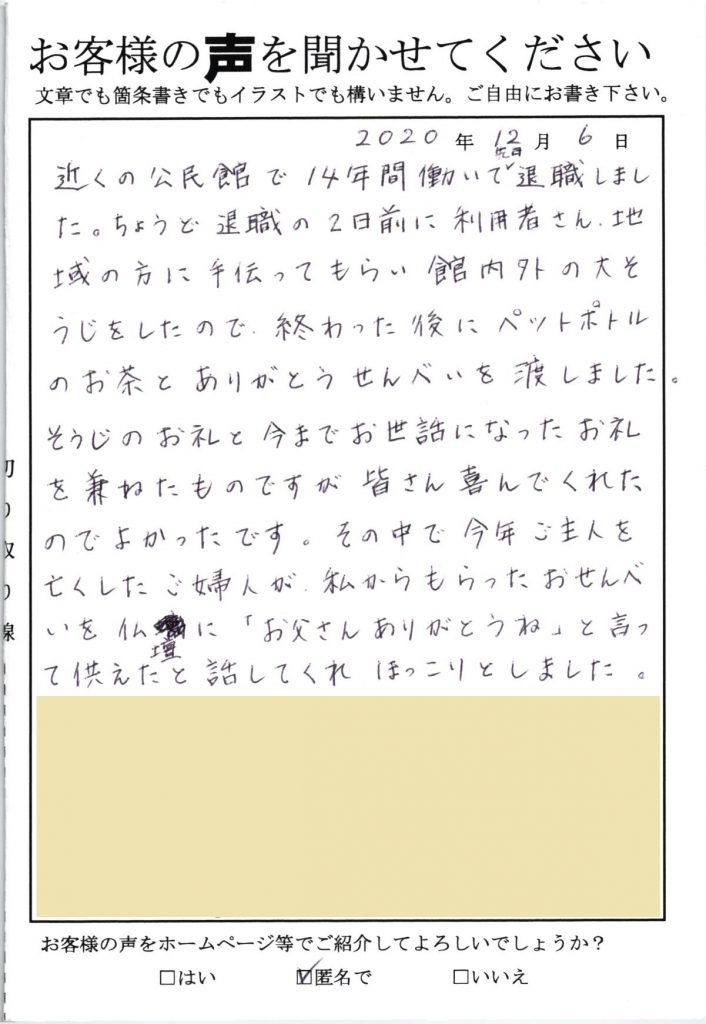 お客様の声を聞かせてください
文章でも箇条書きでもイラストでも構いません。ご自由にお書き下さい。
2020年 12月 6日
先日
近くの公民館で14年間働いて退職しまし
た。ちょうど退職の2日前に利用者さん、地
域の方に手伝ってもらい館内外の大そ
うじをしたので、終わった後にペットボトル
のお茶とありがとうせんべいを渡しました。
そうじのお礼と今までお世話になったお礼
を兼ねたものですが皆さん喜んでくれた
のでよかったです。その中で今年ご主人を
亡くしたご婦人が、私からもらったおせんべ
いを仏壇に「お父さんありがとうね」と言っ
て供えたと話してくれほっこりとしました。
切り取り線
お客様の声をホームページ等でご紹介してよろしいでしょうか？
□はい ☑匿名で □いいえ